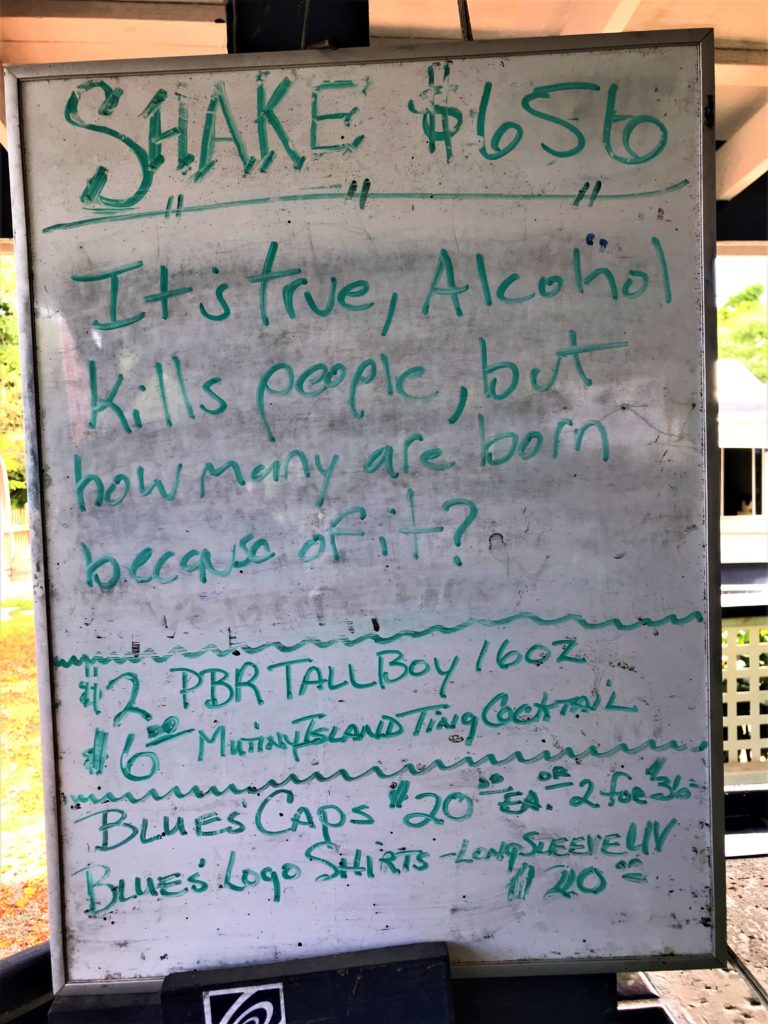 SHAKE $656
It's true, Alcohol
kills people, but
how many are born
because of it?
$2 PBR TALL BOY 16OZ
$6.00 MUTINY ISLAND TING COCKTAIL
BLUES' CAPS $20.00 EA. OR 2 FOR $36
BLUES' LOGO SHIRTS - LONG SLEEVE UV
$40.00